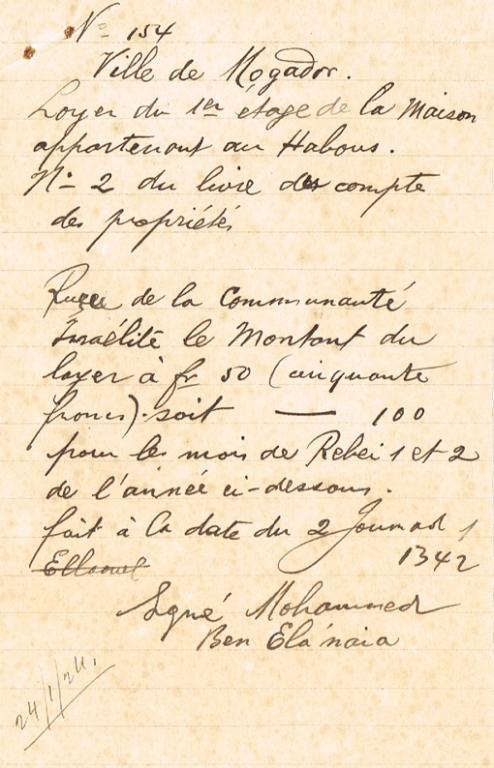 No 154
Ville de Mogador.
Loyer du 1er étage de la Maison
appartenant au Habous.
No 2 du livre des compte
des propriétés
de la Communauté
Israélite le Montant du
loyer à fr 50 (cinquante
francs). soit — 100
pour les mois de Rebei 1 et 2
de l'année ci-dessous.
fait à la date du 2 Joumad 1
1342
Signé Mohammed
Ben
24/1/24.